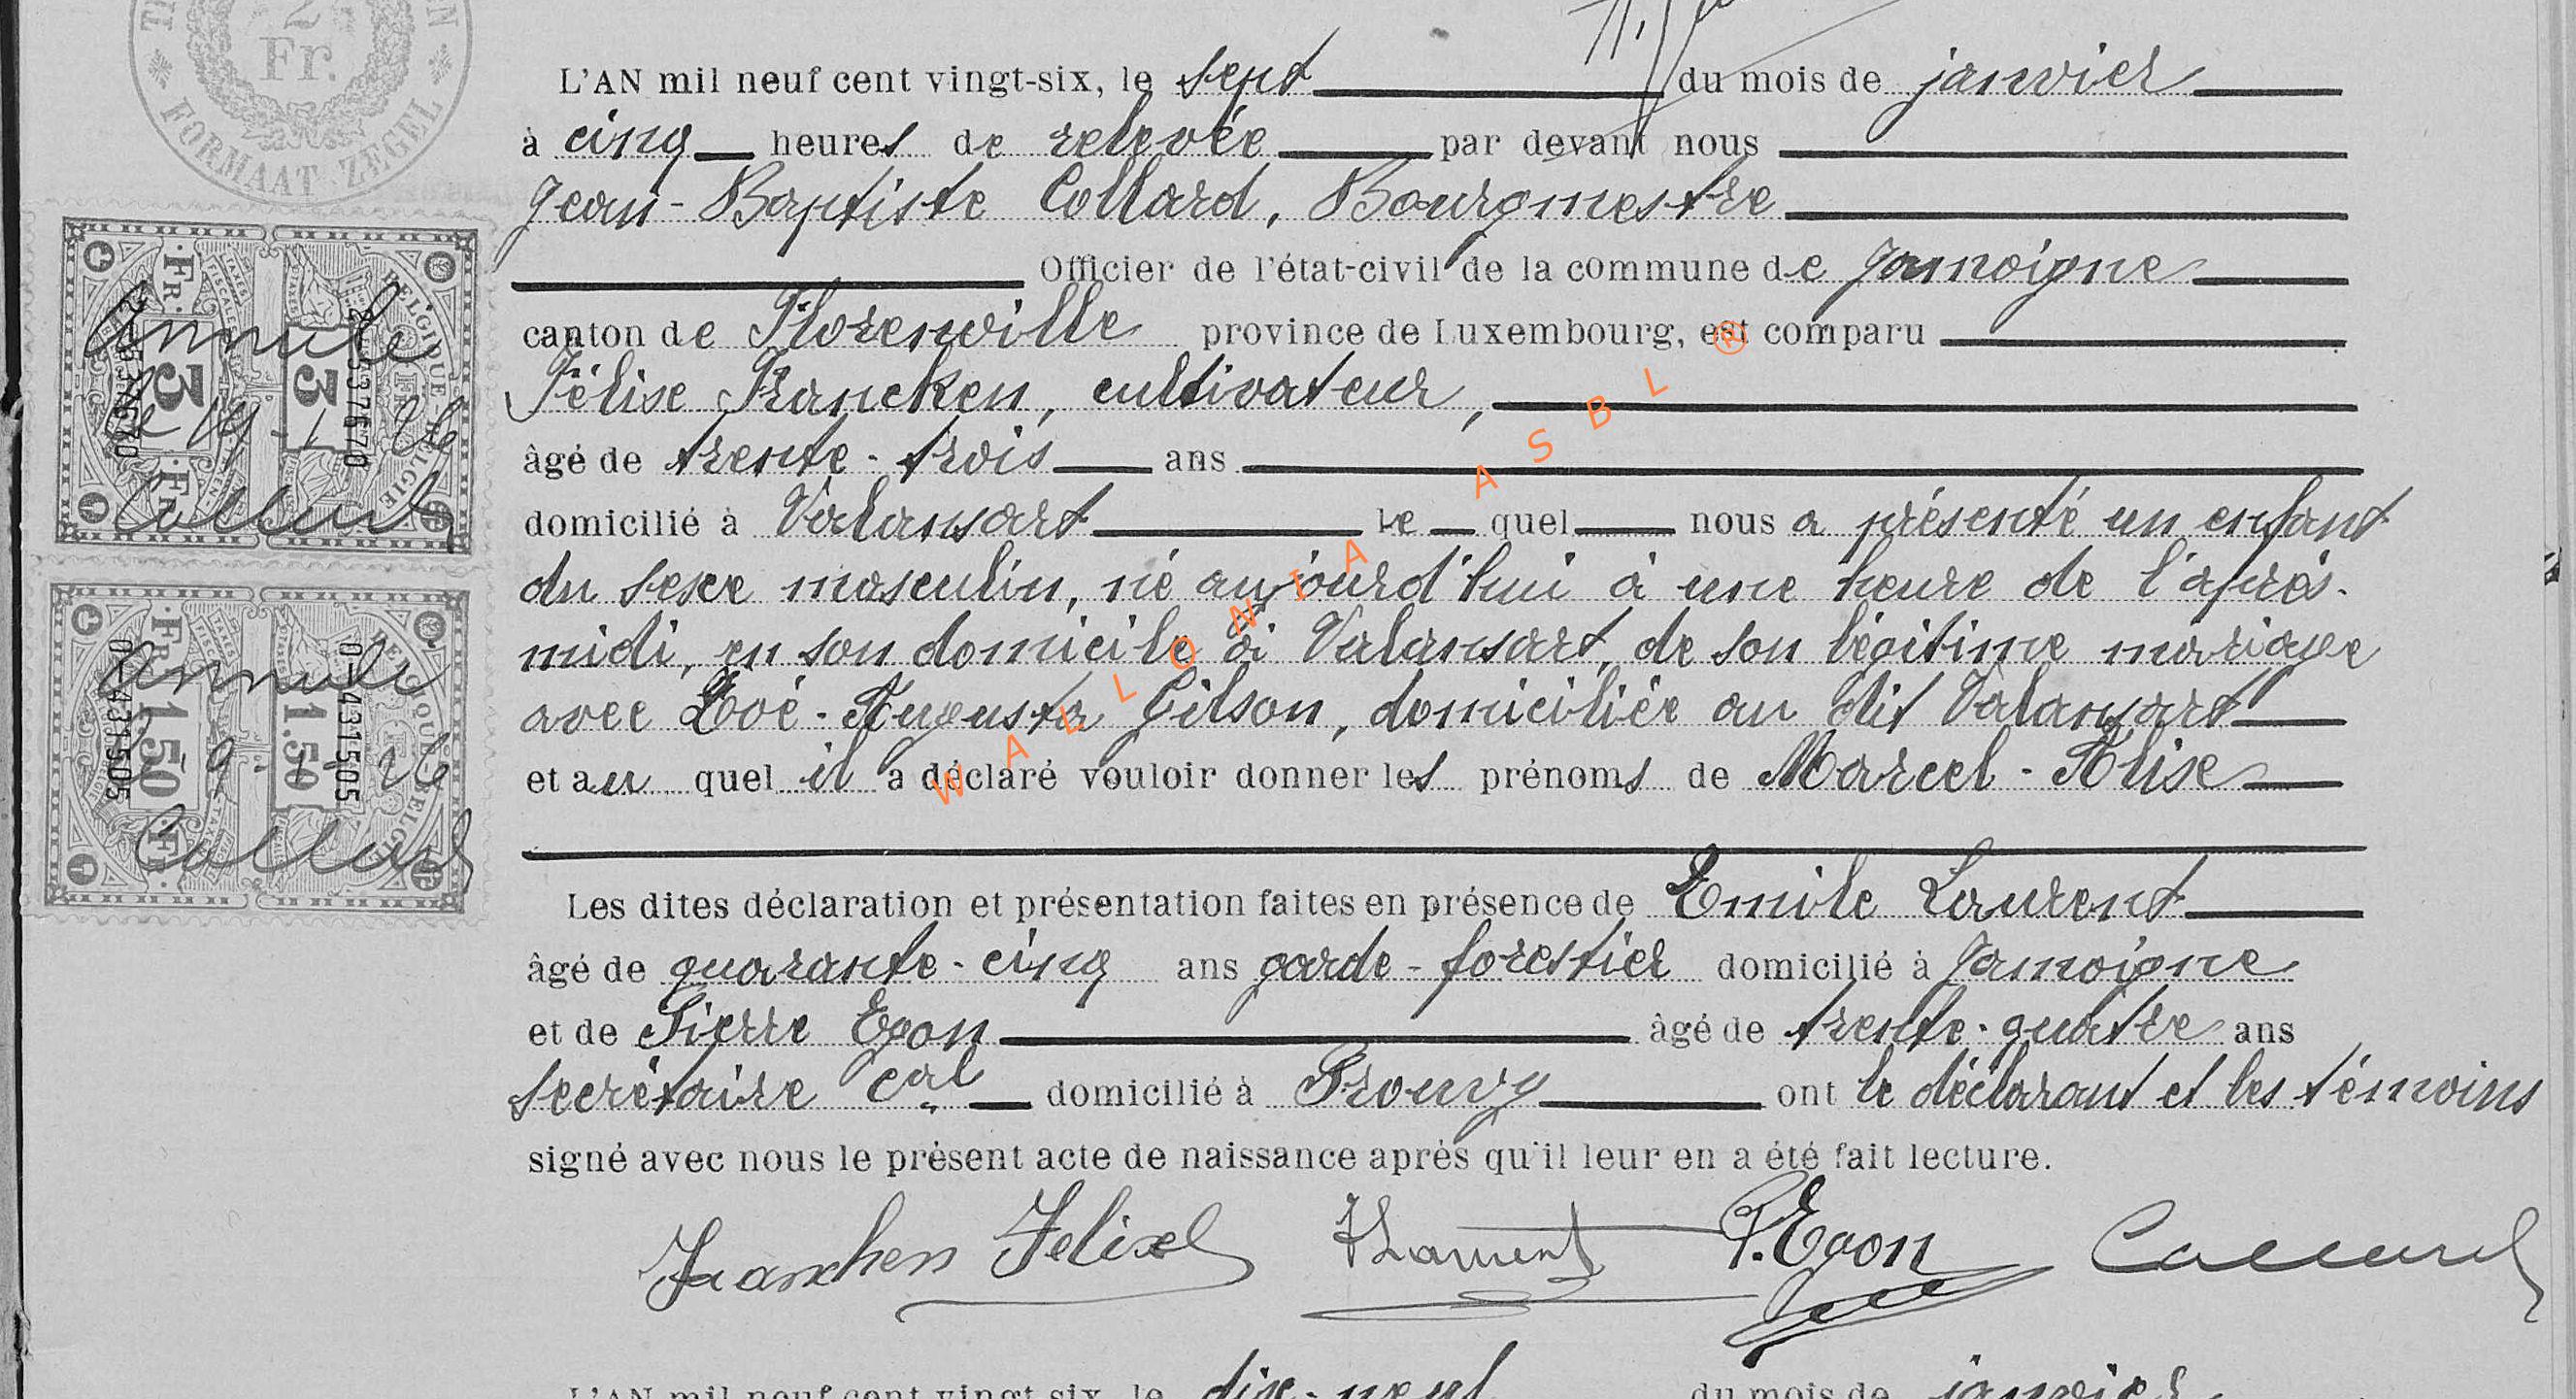 2
Fr.
FORMAAT ZEGEL
L'AN mil neuf cent vingt-six, le sept du mois de janvier
à cinq heures de relevée par devant nous
Jean-Baptiste Collard, Bourgmestre
Officier de l'état-civil de la commune de Jamoigne
canton de Florenville province de Luxembourg, est comparu
Félise Francken, cultivateur,
âgé de trente-trois ans
domicilié à Valansart le quel nous a présenté un enfant
du sexe masculin, né aujourd'hui à une heure de l'après-
midi, en son domicile à Valansart, de son légitime mariage
avec Zoé-Augusta Gilson, domiciliée au dit Valansart
et au quel il a déclaré vouloir donner les prénoms de Marcel-Alise
Les dites déclaration et présentation faites en présence de Emile Laurent
âgé de quarante-cinq ans garde-forestier domicilié à Jamoigne
et de Pierre Egon âgé de trente-quatre ans
secrétaire cal domicilié à Prouvy ont le déclarant et les témoins
signé avec nous le présent acte de naissance après qu'il leur en a été fait lecture.
Francken Felix ELaurent P.Egon Collard
L'AN mil neuf cent vingt-six, le dix-neuf du mois de janvier
BELGIQUE-BELGIE
Fr. 3 3 Fr.
537670
Annulé
le 19-1-26
Collard
BELGIQUE-BELGIE
Fr. 1.50 1.50 Fr.
0-431505
0-431505
Annulé
Collard
WALLONIA ASBL ®